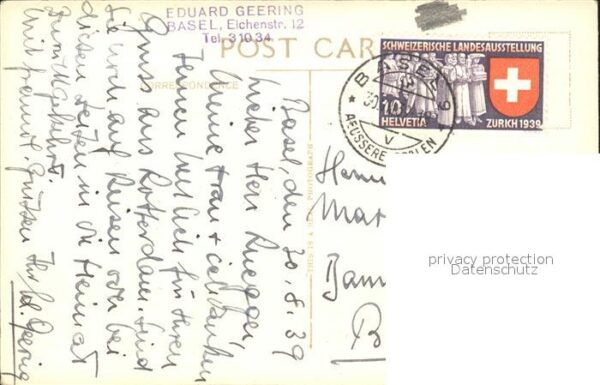 EDUARD GEERING
BASEL, Eichenstr. 12
Tel. 3 10 34
POST CAR
CORRESPONDENCE
SCHWEIZERISCHE LANDESAUSSTELLUNG
10
HELVETIA
ZÜRICH 1939
BASEL 9
V
THIS IS A REAL PHOTOGRAPH
Basel, den 30.8.39
Lieber Herr Ruegger,
Meine Frau + ich danken
Ihnen herzlich für Ihren
Gruss aus Rotterdam. Sind
Sie noch auf Reisen oder bei
diesen Zeiten in die Heimat
zurückgekehrt.
Mit freundl. Grüssen Ihr Ed. Geering
Herrn
B
privacy protection
Datenschutz